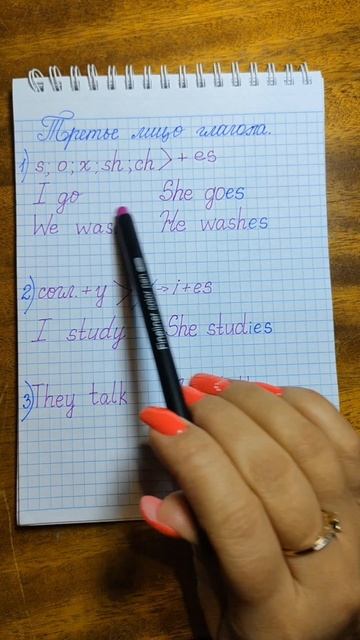 Третье лицо глагола.
1) s; o; x; sh; ch > + es
I go She goes
We He washes
2) согл. + y > → i+es
I study She studies
3) They talk